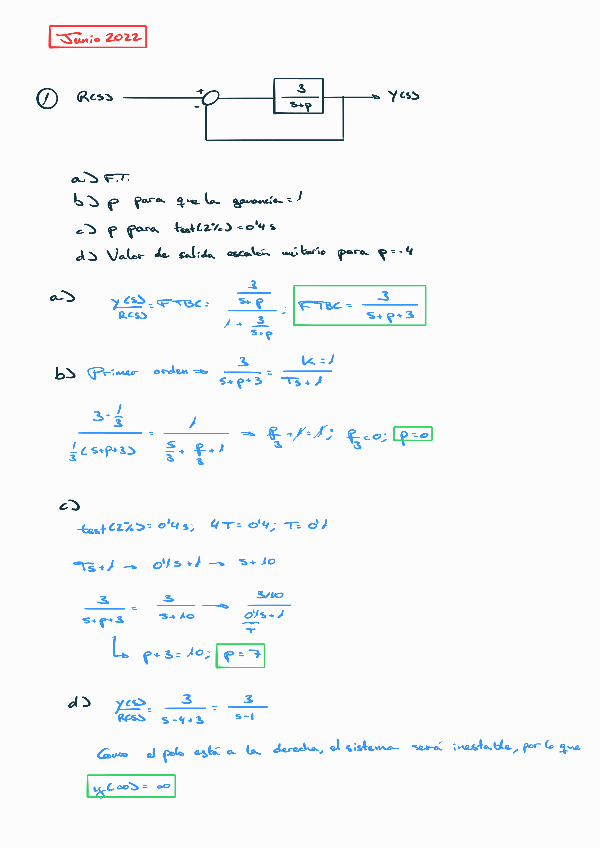 Junio 2022
① R(s) + - 3/(s+p) Y(s)
a) F.T.
b) p para que la ganancia = 1
c) p para test(2%) = 0'4 s
d) Valor de salida escalón unitario para p = -4
a) Y(s)/R(s) = FTBC = (3/(s+p))/(1 + 3/(s+p)); FTBC = 3/(s+p+3)
b) Primer orden ⇒ 3/(s+p+3) = K=1/(Ts+1)
(3·1/3)/(1/3(s+p+3)) = 1/(s/3 + p/3 + 1) ⇒ p/3 + 1 = 1; p/3 = 0; p=0
c)
test(2%) = 0'4 s; 4T = 0'4; T = 0'1
Ts+1 → 0'1s+1 → s+10
3/(s+p+3) = 3/(s+10) → (3/10)/(0'1s+1)
T
p+3 = 10; p = 7
d) Y(s)/R(s) = 3/(s-4+3) = 3/(s-1)
Como el polo está a la derecha, el sistema será inestable, por lo que
y(∞) = ∞